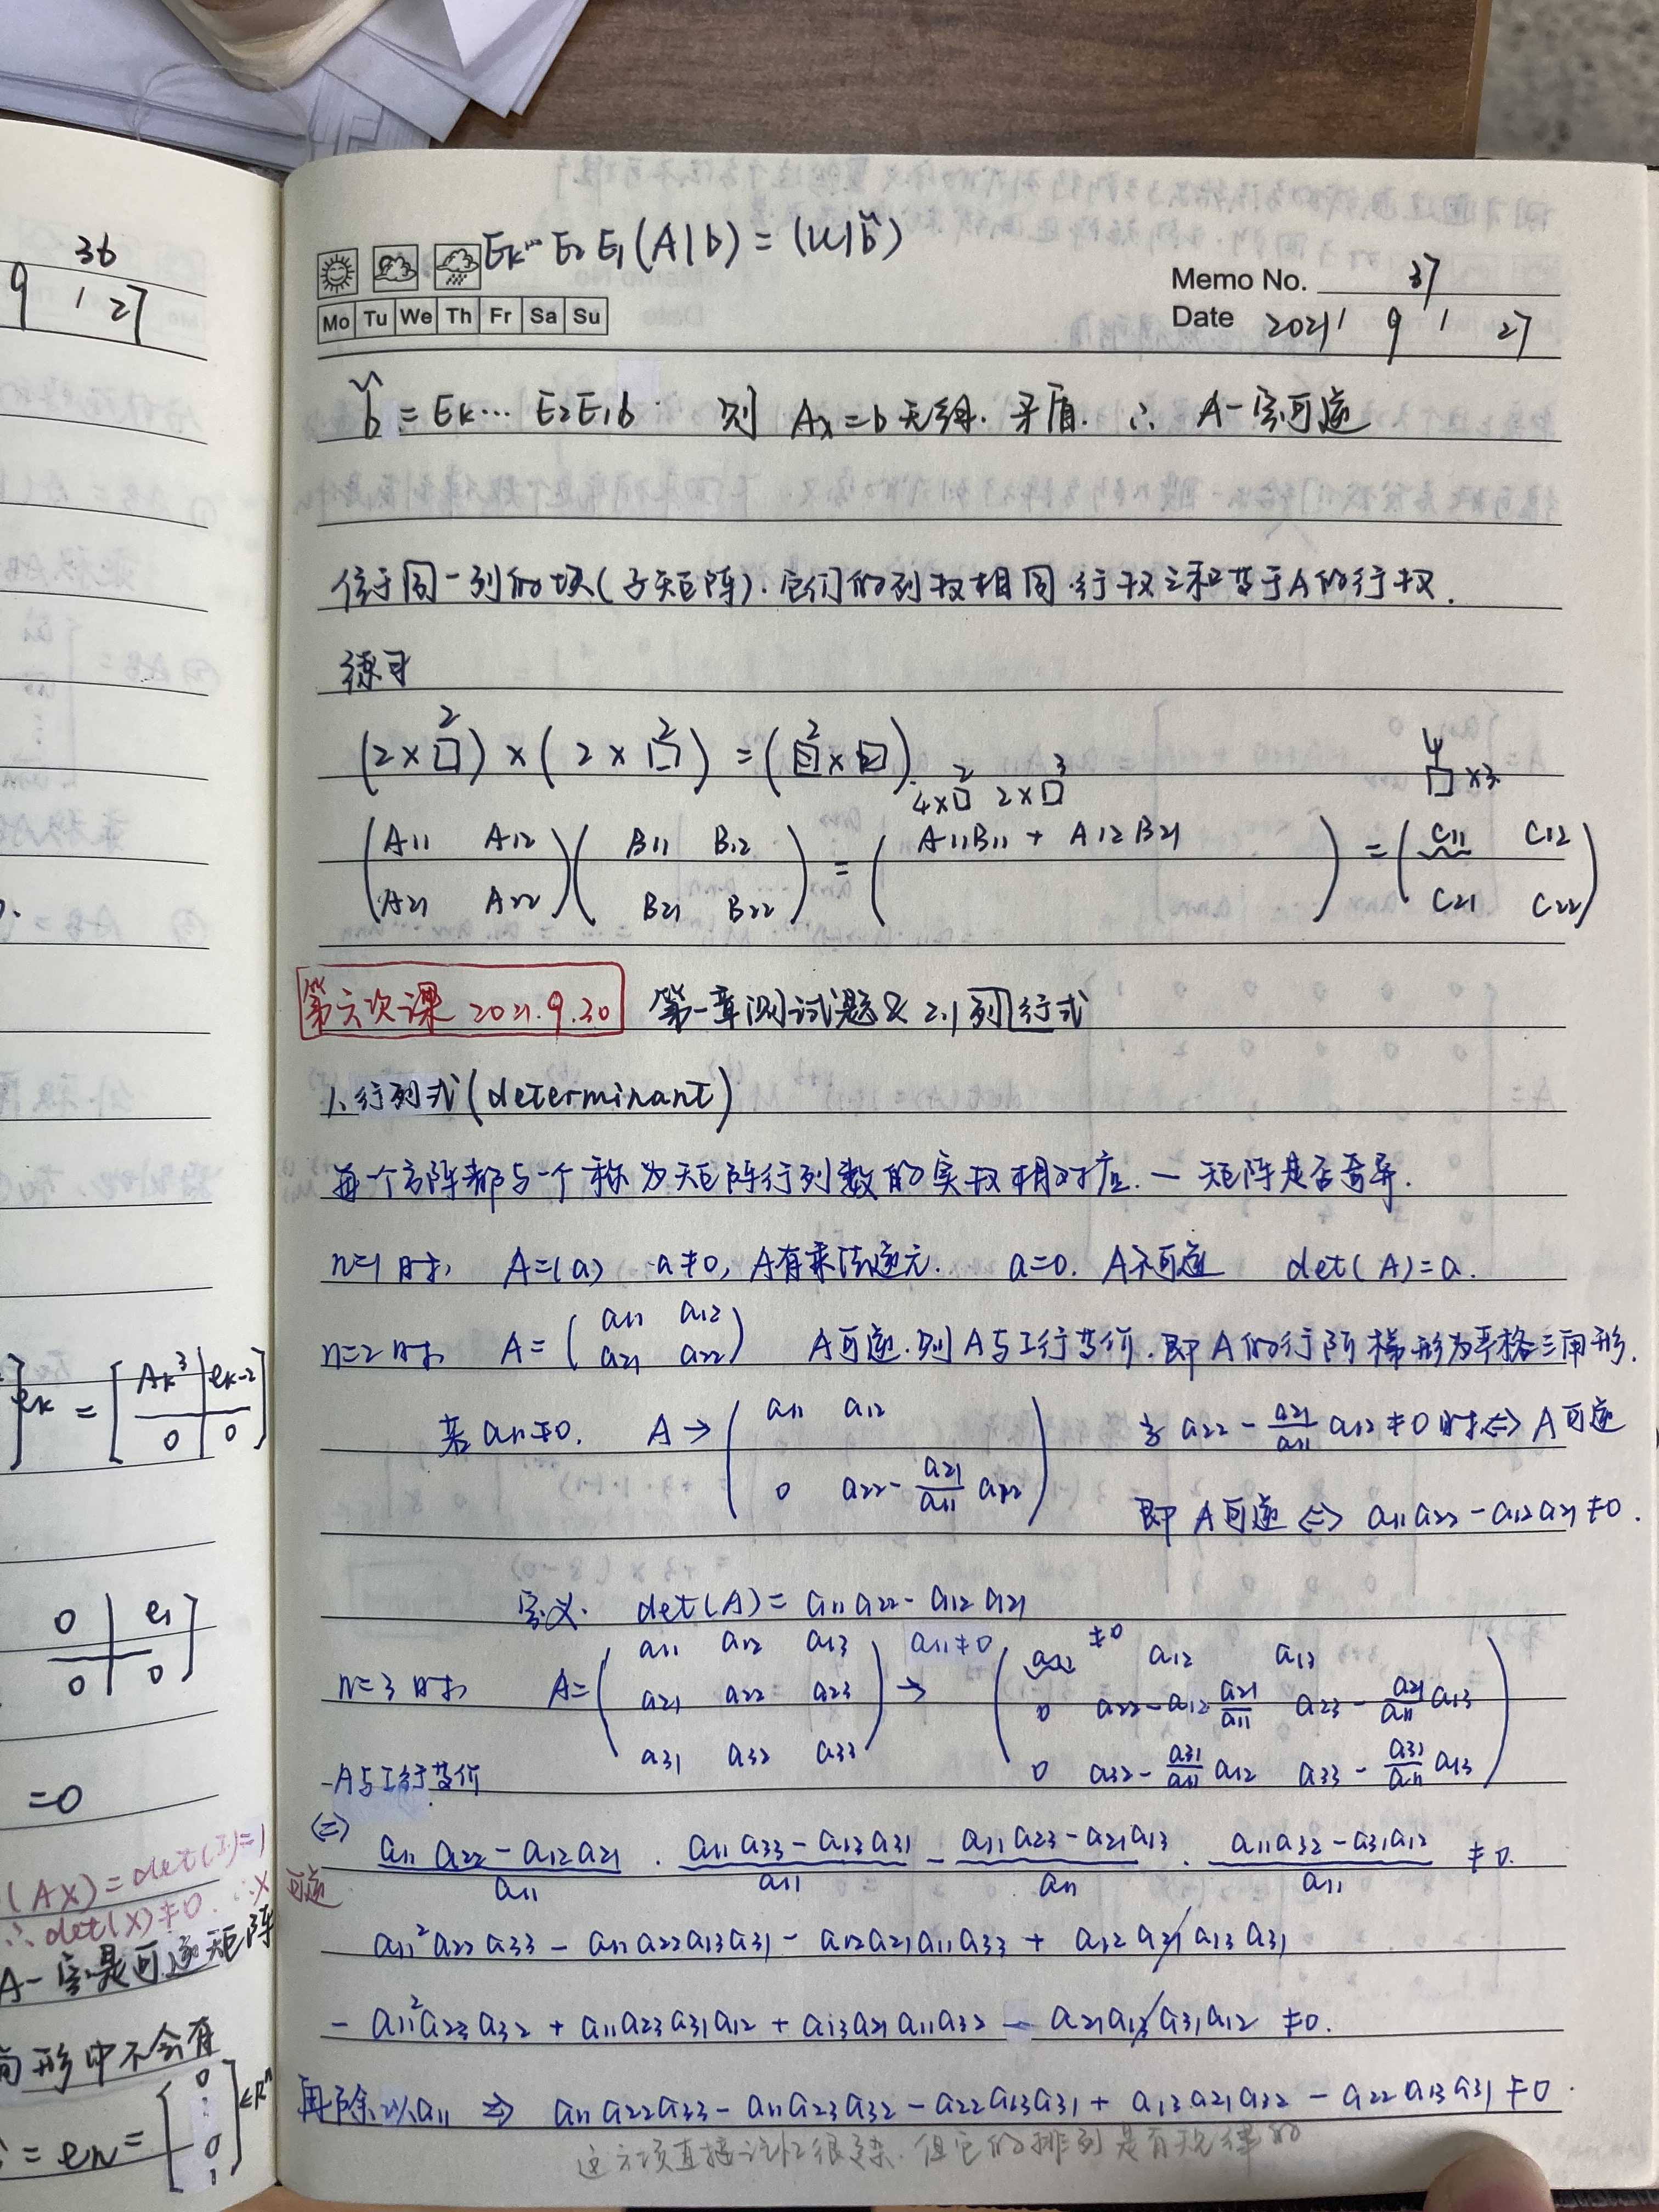 36
9 / 27
Ek… E2 E1 (A|b) = (U|b̃)
Memo No. 37
Mo Tu We Th Fr Sa Su
Date 2021 / 9 / 27
b̃ = Ek… E2E1b 则 Ax=b无解. 矛盾. ∴ A一定可逆
位于同一列的块(子矩阵). 它们的列数相同.行数之和等于A的行数.
练习
(2×□²)×(2×□²)=(□²×□)
4×□² 2×□³ □⁴×3
(A11 A12; A21 A22)(B11 B12; B21 B22) = (A11B11 + A12B21 ) = (C11 C12; C21 C22)
第六次课 2021.9.30 第一章测试题 & 2.1列行式
1、行列式(determinant)
每一个方阵都与一个称为矩阵行列数的实数相对应. — 矩阵是否奇异.
n=1时, A=(a) a≠0, A有乘法逆元. a=0. A不可逆 det(A)=a.
n=2时, A=(a11 a12; a21 a22) A可逆.则A与I行等价.即A的行阶梯形为严格三角形.
若a11≠0. A→(a11 a12; 0 a22-a21/a11 a12) 当a22-a21/a11 a12≠0时⇔A可逆
即A可逆⇔a11a22-a12a21≠0.
定义. det(A)=a11a22-a12a21
n=3时, A=(a11 a12 a13; a21 a22 a23; a31 a32 a33) a11≠0 → (a11≠0 a12 a13; 0 a22-a12 a21/a11 a23-a21/a11 a13; 0 a32-a31/a11 a12 a33-a31/a11 a13)
A与I行等价
⇔ (a11a22-a12a21)/a11 · (a11a33-a13a31)/a11 - (a11a23-a21a13)/a11 · (a11a32-a31a12)/a11 ≠0.
a11²a22a33 - a11a22a13a31 - a12a21a11a33 + a12a21a13a31
- a11²a23a32 + a11a23a31a12 + a13a21a11a32 - a21a13a31a12 ≠0.
再除以a11 ⇒ a11a22a33-a11a23a32-a22a13a31+a13a21a32-a22a13a31≠0.
这六项直接记忆很杂.但它的排列是有规律的
]ek = [Ak³ | ek-2; 0 | 0]
0 | e1
0 | 0 ]
=0
(AX)=det(I)=1
∴det(X)≠0. ∴X可逆
A一定是可逆矩阵
形中不会有
=en=[0 ⋮ 0 1]∈Rⁿ